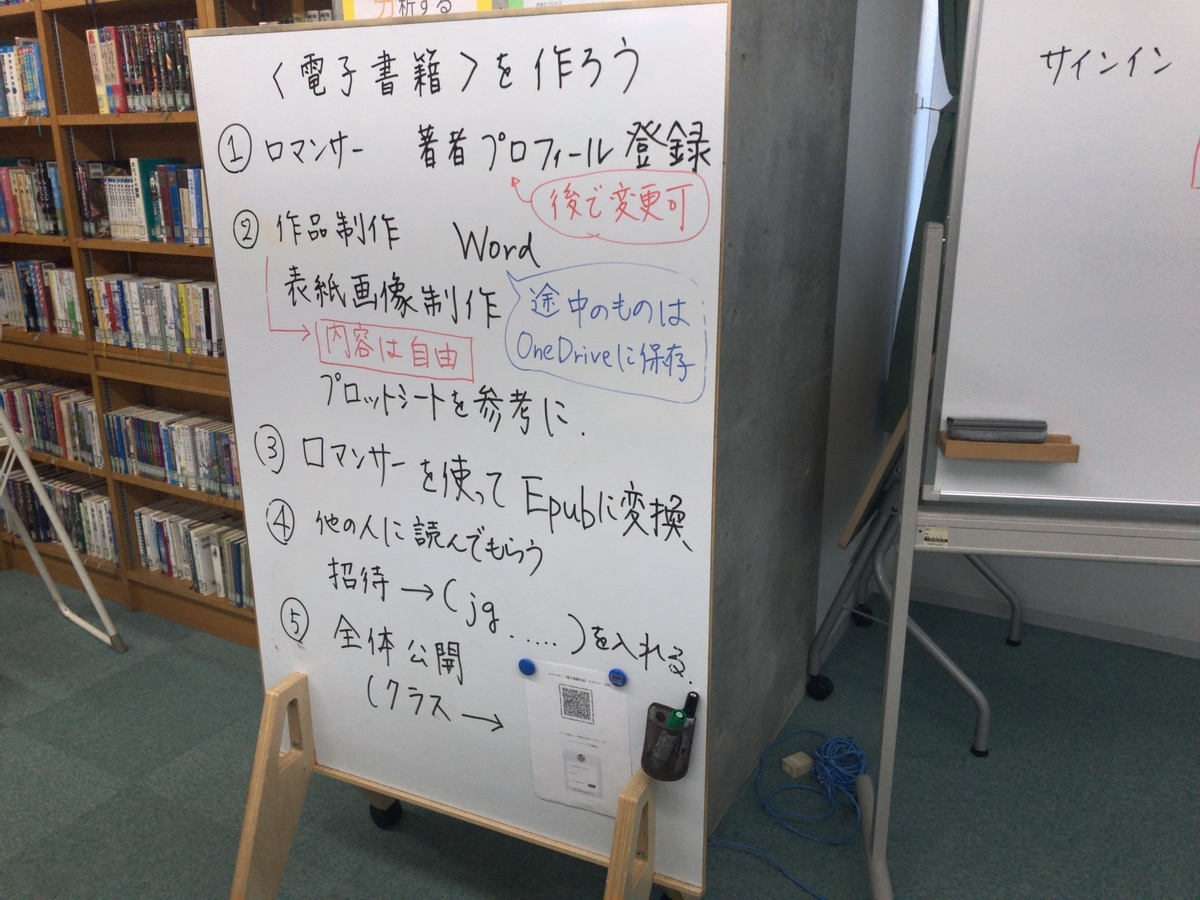 分析する
〈電子書籍〉を作ろう
① ロマンサー 著者プロフィール登録
後で変更可
② 作品制作 Word
表紙画像制作
途中のものは
OneDriveに保存
内容は自由
プロットシートを参考に.
③ ロマンサーを使ってEpubに変換
④ 他の人に読んでもらう
招待→(jg.....)を入れる.
⑤ 全体公開
(クラス→
サインイン